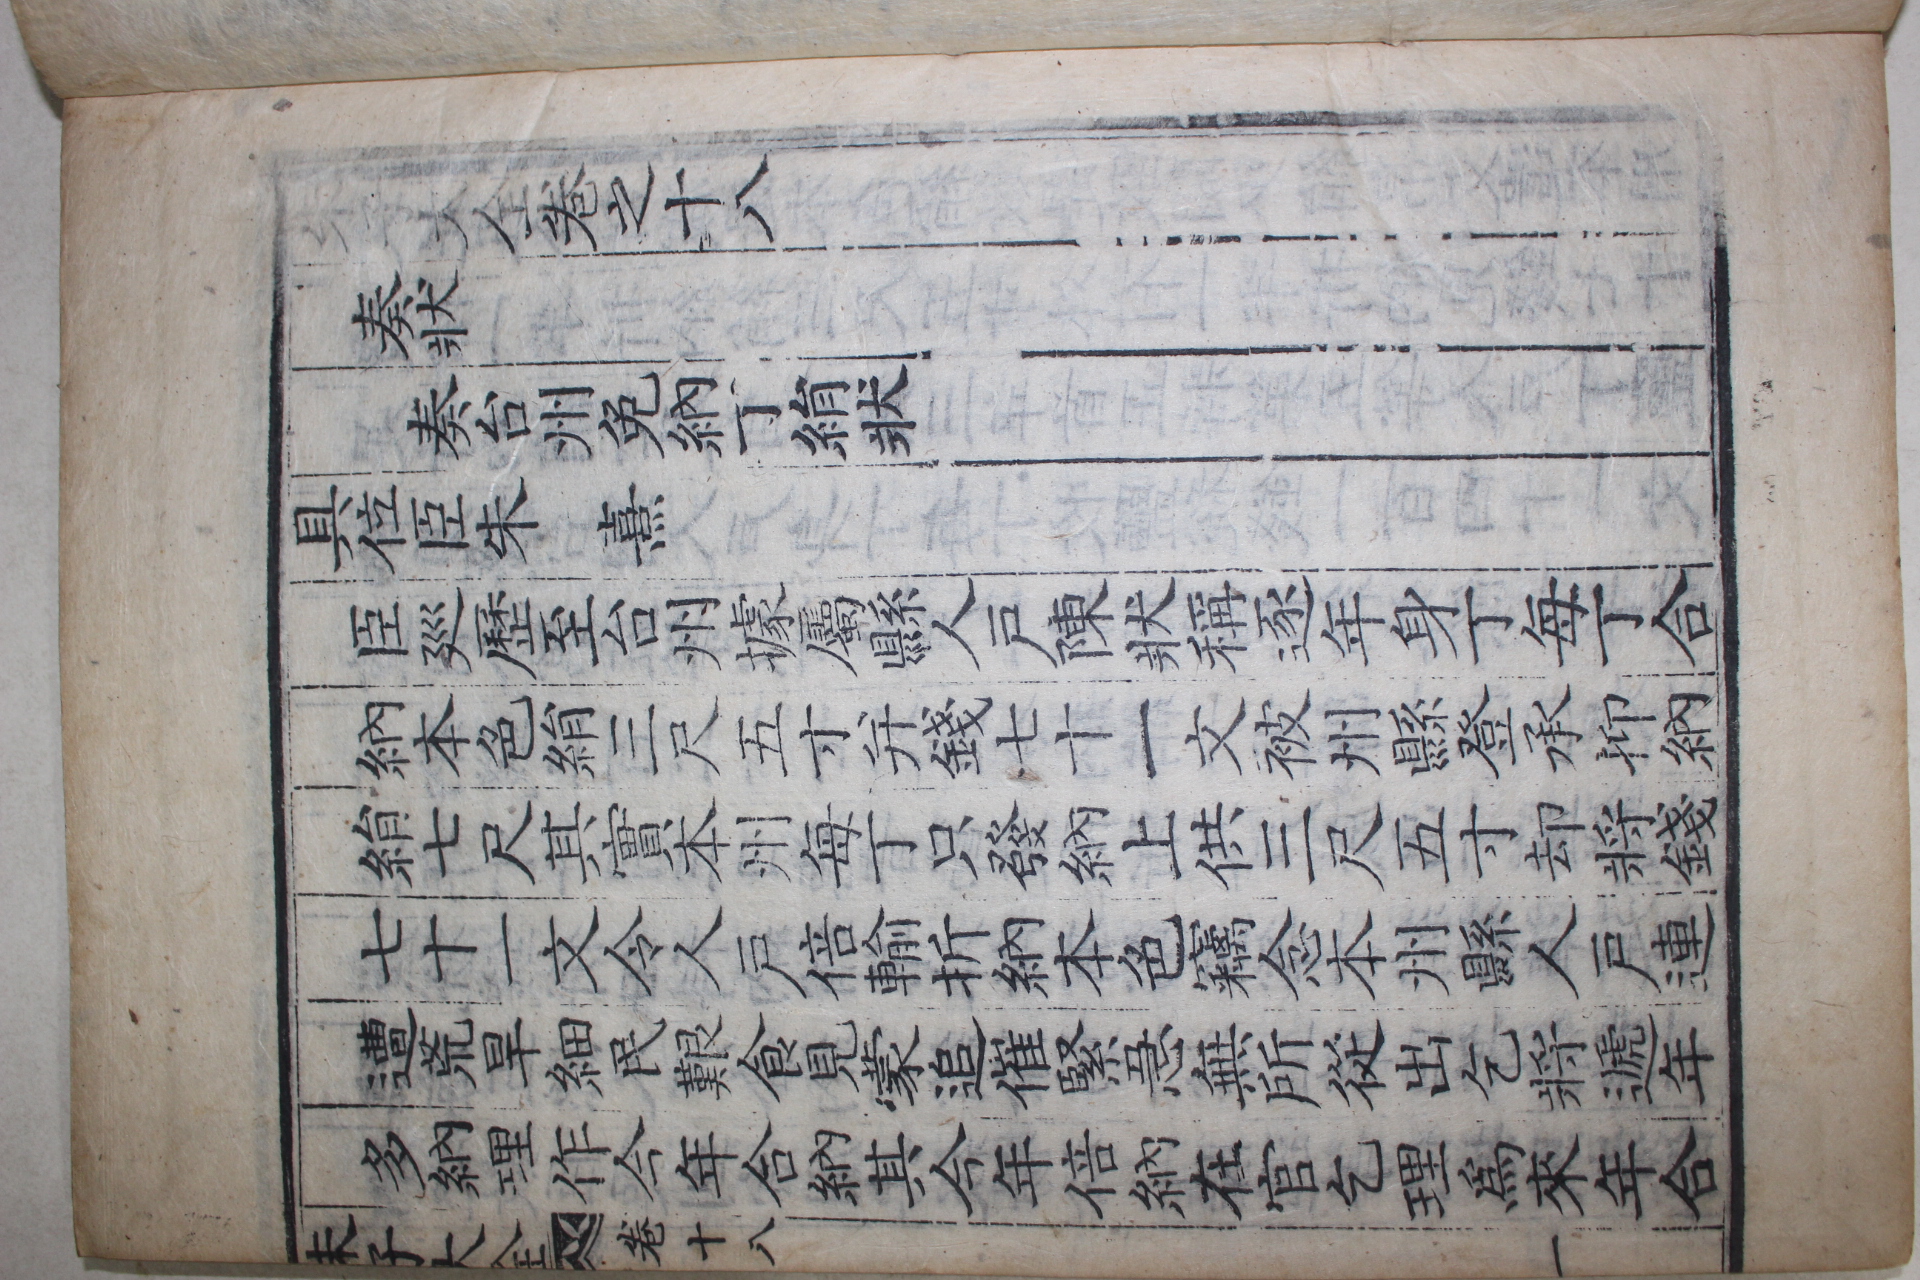 朱子大全卷之十八
奏狀
奏台州免納丁絹狀
具位臣朱 熹
臣廵歷至台州據屬縣人戶陳狀稱逐年身丁每丁合
納本色絹三尺五寸弁錢七十一文被州縣登承抑納
絹七尺其實本州每丁只發納上供三尺五寸却將錢
七十一文令人戶倍輸折納本色竊念本州縣人戶連
遭荒旱細民艱食見蒙追催緊急無所從出乞將遞年
多納理作今年合納其今年倍納在官乞理爲來年合
朱子大全 卷十八 一